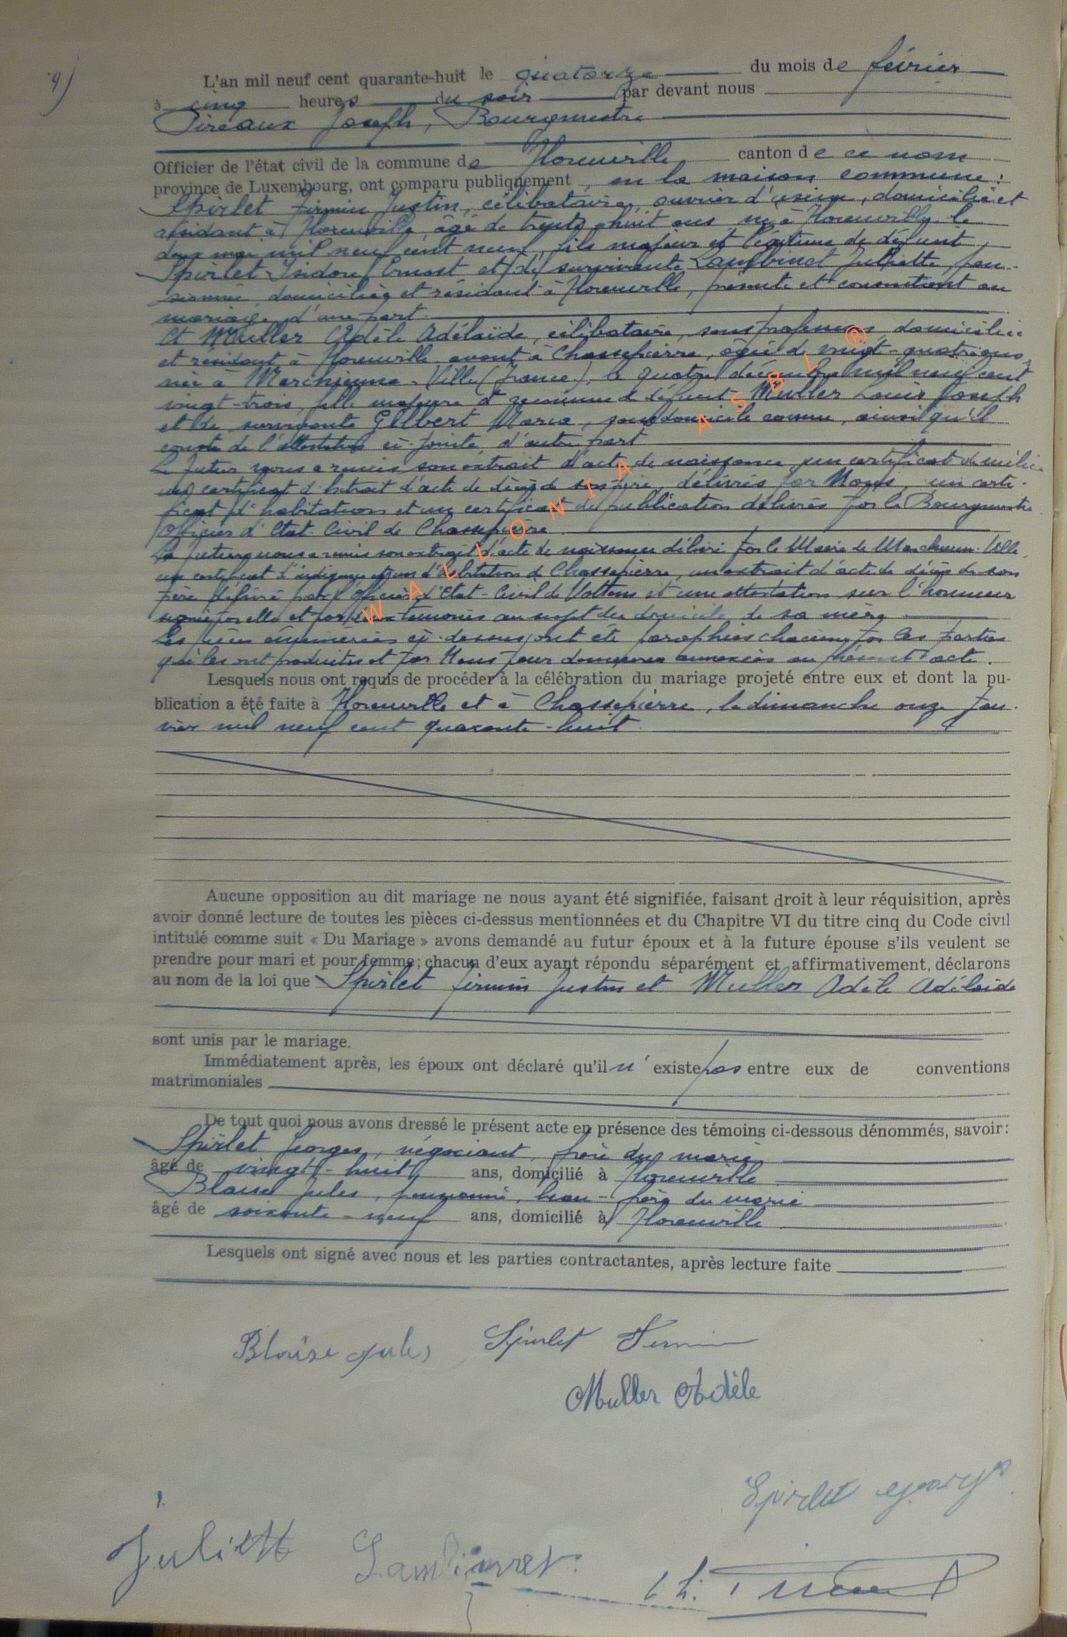 9)
L'an mil neuf cent quarante-huit le quatorze du mois de février
à cinq heures du soir par devant nous
Pireaux Joseph, Bourgmestre
Officier de l'état civil de la commune de Florenville canton de ce nom
province de Luxembourg, ont comparu publiquement, en la maison commune :
Spirlet Firmin Justin, célibataire, ouvrier d'usine, domicilié et
résidant à Florenville, âgé de trente huit ans, né à Florenville le
deux mai mil neuf cent neuf, fils majeur et légitime de défunt
Spirlet Isidore Ernest et de survivante Lambinet Juliette, pen-
sionnée, domiciliée et résidant à Florenville, présente et consentant au
mariage, d'une part.
Et Muller Adèle Adélaïde, célibataire, sans profession, domiciliée
et résidant à Florenville avant à Chassepierre, âgée de vingt-quatre ans,
née à Marchienne-Ville (France), le quatre décembre mil neuf cent
vingt-trois, fille majeure et reconnue de défunt Muller Louis Joseph
et de survivante Gilbert Maria, sans domicile connu, ainsi qu'il
conste de l'attestation ci-jointe, d'autre part
Le futur nous a remis son extrait d'acte de naissance, un certificat de milice
un certificat d'extrait d'acte de décès de son père, délivrés par Nous, un certi-
ficat d'habitation et un certificat de publication délivrés par le Bourgmestre
Officier d'Etat-Civil de Chassepierre.
La future nous a remis son extrait d'acte de naissance délivré par le Maire de Marchienne-Ville,
un certificat d'indigence et un d'habitation de Chassepierre, un extrait d'acte de décès de son
père délivré par l'Officier d'Etat-Civil de et une attestation sur l'honneur
signée par elle et par deux témoins au sujet du domicile de sa mère
Les pièces énumérées ci-dessus ont été paraphées chacune par les parties
qui les ont produites et par Nous pour demeurer annexées au présent acte.
Lesquels nous ont requis de procéder à la célébration du mariage projeté entre eux et dont la pu-
blication a été faite à Florenville et à Chassepierre, le dimanche onze jan-
vier mil neuf cent quarante-huit.
Aucune opposition au dit mariage ne nous ayant été signifiée, faisant droit à leur réquisition, après
avoir donné lecture de toutes les pièces ci-dessus mentionnées et du Chapitre VI du titre cinq du Code civil
intitulé comme suit « Du Mariage » avons demandé au futur époux et à la future épouse s'ils veulent se
prendre pour mari et pour femme; chacun d'eux ayant répondu séparément et affirmativement, déclarons
au nom de la loi que Spirlet Firmin Justin et Muller Adèle Adélaïde
sont unis par le mariage.
Immédiatement après, les époux ont déclaré qu'il n'existe pas entre eux de conventions
matrimoniales
De tout quoi nous avons dressé le présent acte en présence des témoins ci-dessous dénommés, savoir :
Spirlet Georges, négociant, frère du marié
âgé de vingt-huit ans, domicilié à Florenville
Blaise Jules, pensionné, beau-frère du marié
âgé de soixante-neuf ans, domicilié à Florenville
Lesquels ont signé avec nous et les parties contractantes, après lecture faite
Blaise Jules Spirlet Firmin
Muller Adèle
Spirlet Georges
Juliette Lambinet
WALLONIA ASBL ®